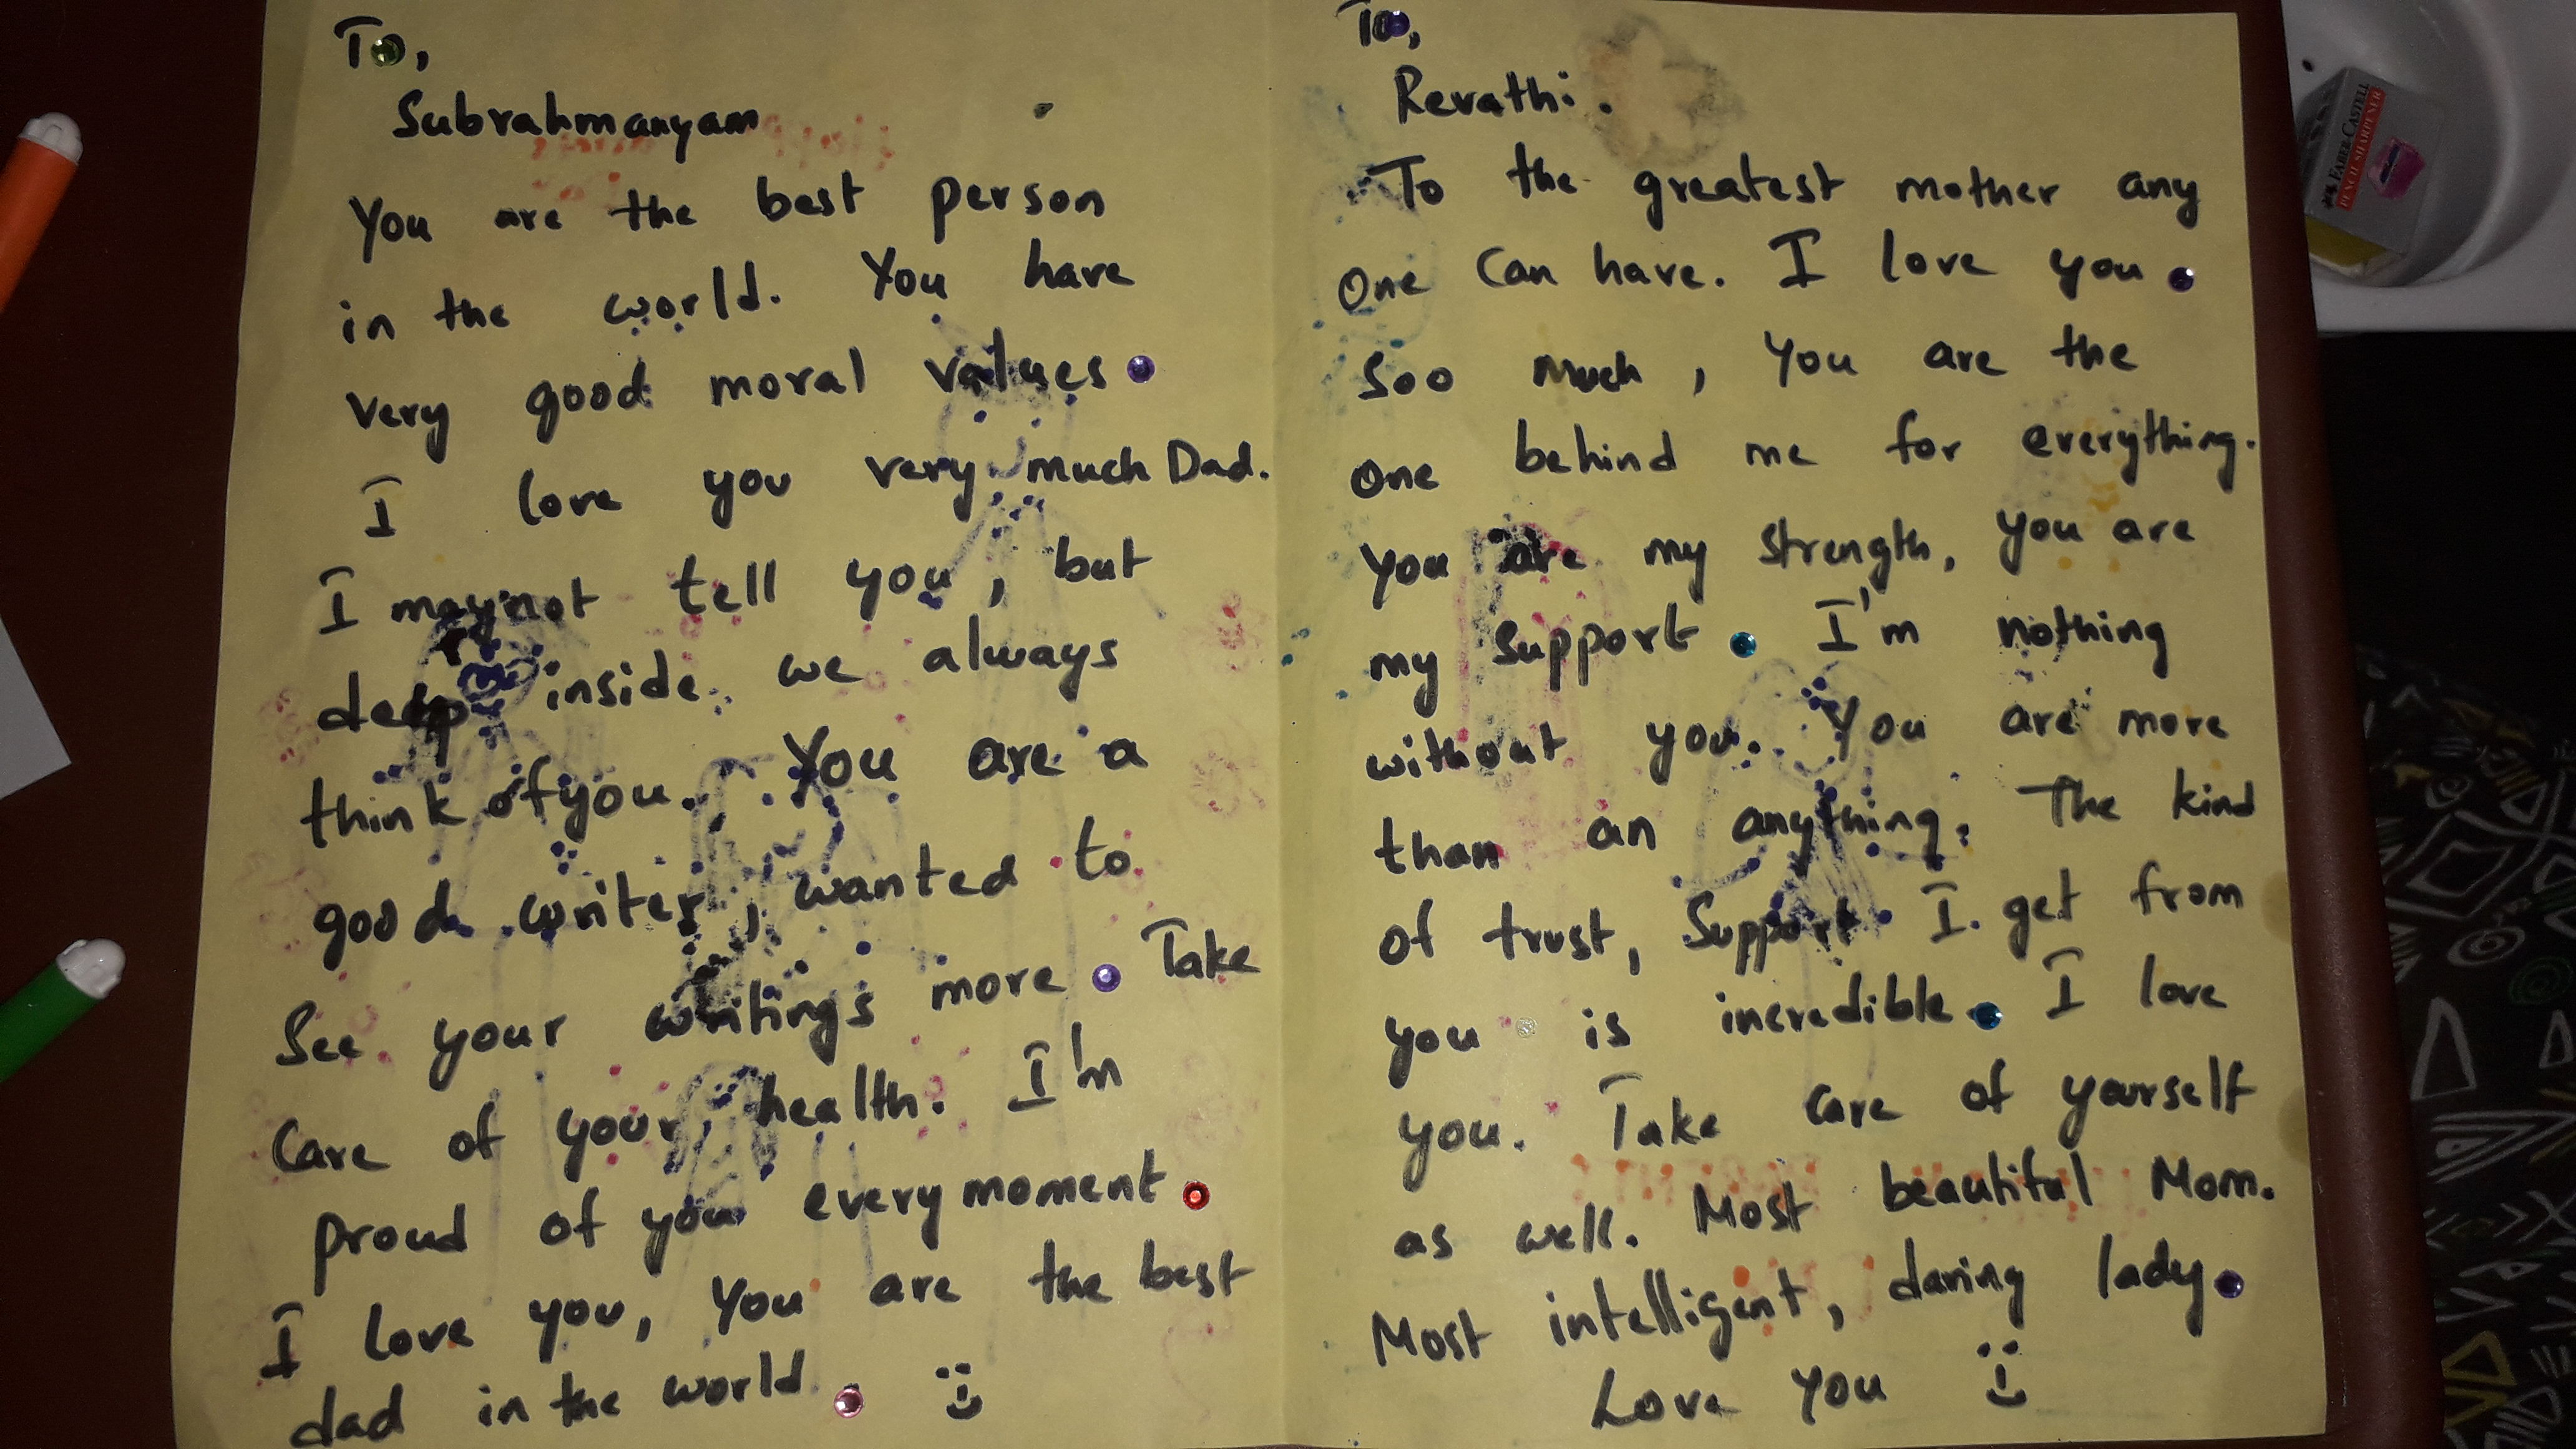 To,
Subrahmanyam
You are the best person
in the world. You have
very good moral values
I love you very much Dad.
I may not tell you, but
deep inside we always
think of you. You are a
good writer, wanted to
See your writings more Take
Care of your health. I'm
proud of you every moment
I love you, you are the best
dad in the world
To,
Revathi.
To the greatest mother any
One Can have. I love you
Soo much, you are the
one behind me for everything.
You are my strength, you are
my Support I'm nothing
without you. You are more
than an anything. The kind
of trust, Support I get from
you is incredible I love
you. Take Care of yourself
as well. Most beautiful Mom.
Most intelligent, daring lady
Love you
FABER-CASTELL
PENCIL SHARPENER